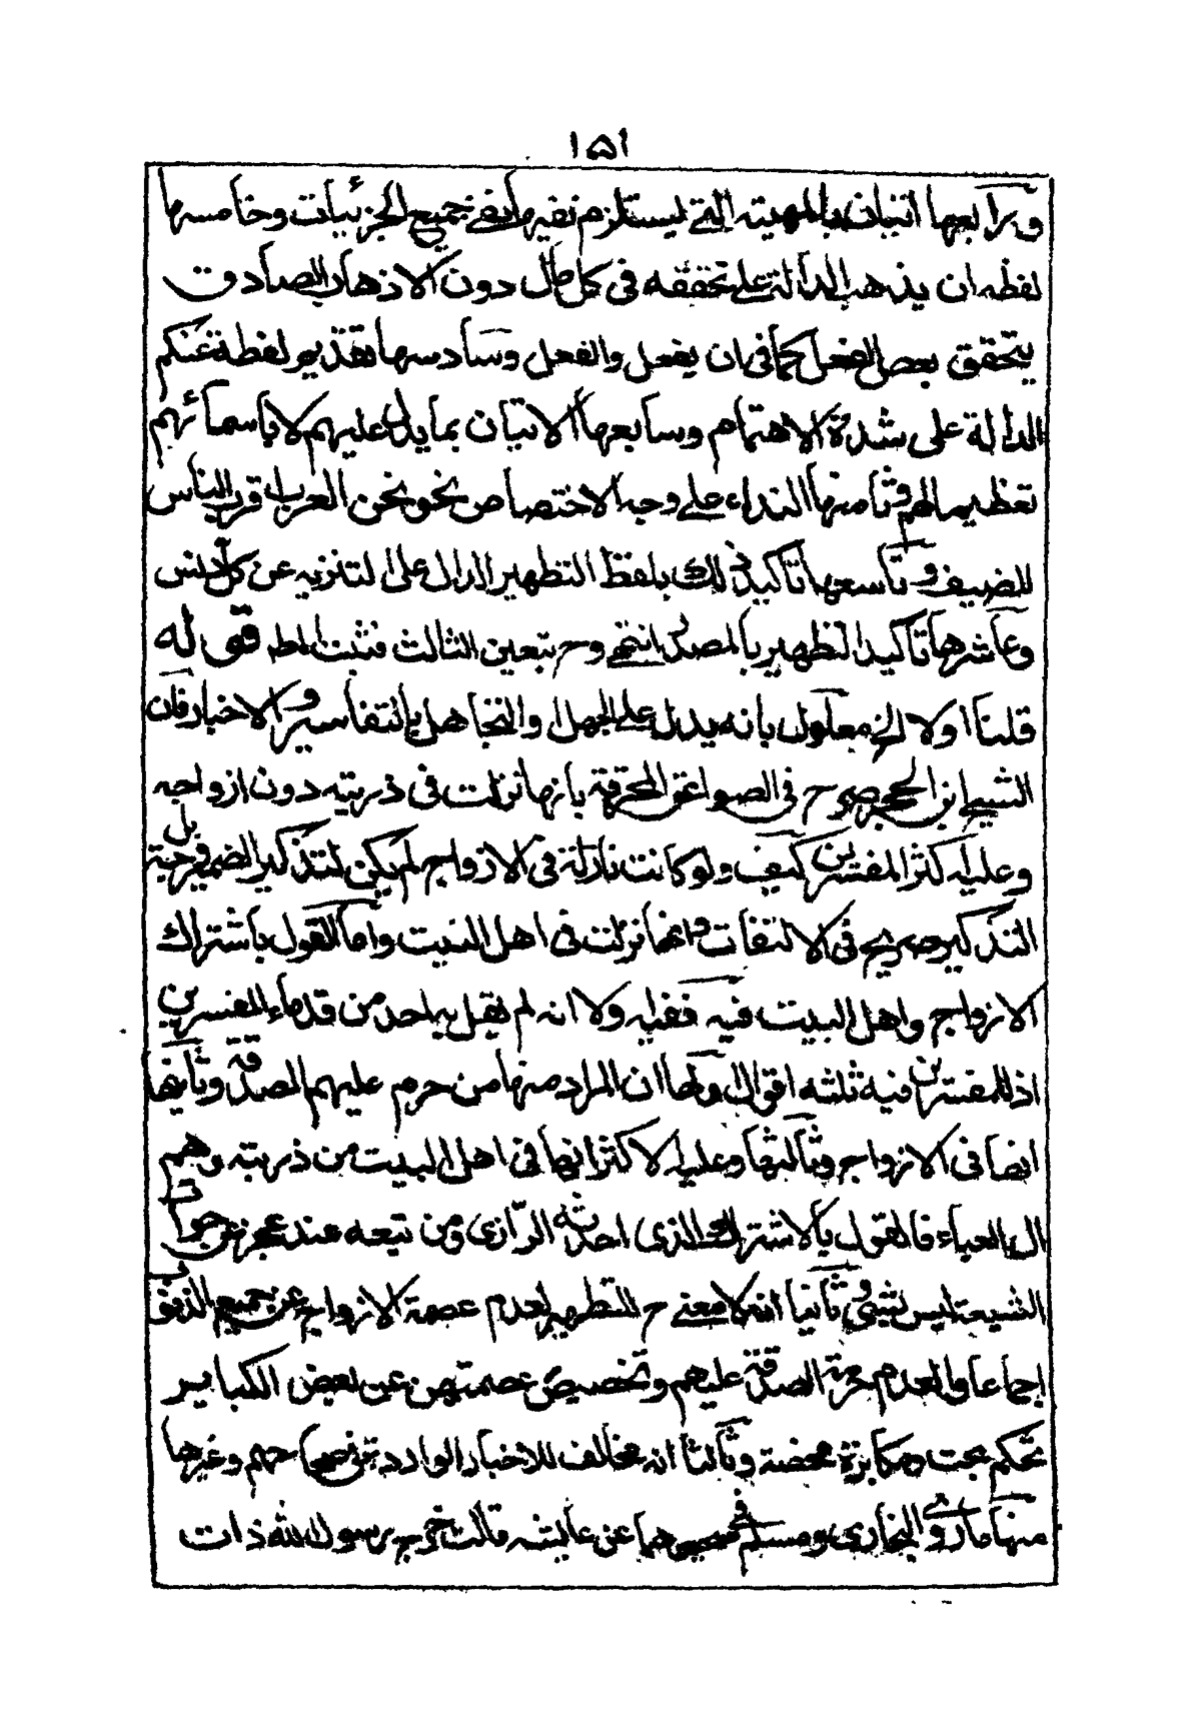 ١٥١
ورابعها اتيان بالمهيته التي يستلزم نفيها نفي جميع الجزئيات وخامسها
لفظه ان يذهب الدالة على تحققه في كل حال دون الاذهاب الصادق
يتحقق بعض الفعل كما في ان يفعل والفعل وسادسها تقديم لفظة عنكم
الدالة على شدة الاهتمام وسابعها الاتيان بما يدل عليهم لا باسمائهم
تعظيما لهم وثامنها النداء على وجه الاختصاص نحو نحن العرب اقرب الناس
للضيف وتاسعها تاكيد ذلك بلفظ التطهير الدال على التنزيه عن كل دنس
وعاشرها تاكيد التطهير بالمصدر انتهى وح تعين الثالث فثبت المط قوله
قلنا اولا الخ معلول بانه يدل على الجهل او التجاهل بالتفاسير والاخبار فان
الشيخ ابن الحجر صرح في الصواعق المحرقة بانها نزلت في ذريته دون ازواجه
وعليه اكثر المفسرين كيف ولو كانت نازلة في الازواج لم يكن لتذكير الضمير وجه بل
التذكير صريح في الالتفات وانما نزلت في اهل البيت واما القول باشتراك
الازواج واهل البيت فيه ففيه اولا انه لم يقل به احد من قدماء المفسرين
اذ للمفسرين فيه ثلثه اقوال اولها ان المراد منها من حرم عليهم الصدقة وثانيها
انها في الازواج وثالثها وعليه الاكثر انها في اهل البيت من ذريته وهم
ال العباء فالقول بالاشتراك الذي احدثه الرازي ومن تبعه عند عجزه عن جواب
الشيعة ليس بشيئ وثانيا انه لا معنى ح للتطهير لعدم عصمة الازواج عن جميع الذنوب
اجماعا ولعدم حرمة الصدقة عليهم وتخصيص عصمتهن عن بعض الكبائر
تحكم بحت ومكابرة محضة وثالثا انه مخالف للاخبار الواردة في صحاحهم وغيرها
منها ما روى البخاري ومسلم في صحيحهما عن عايشه قالت خرج رسول الله ذات